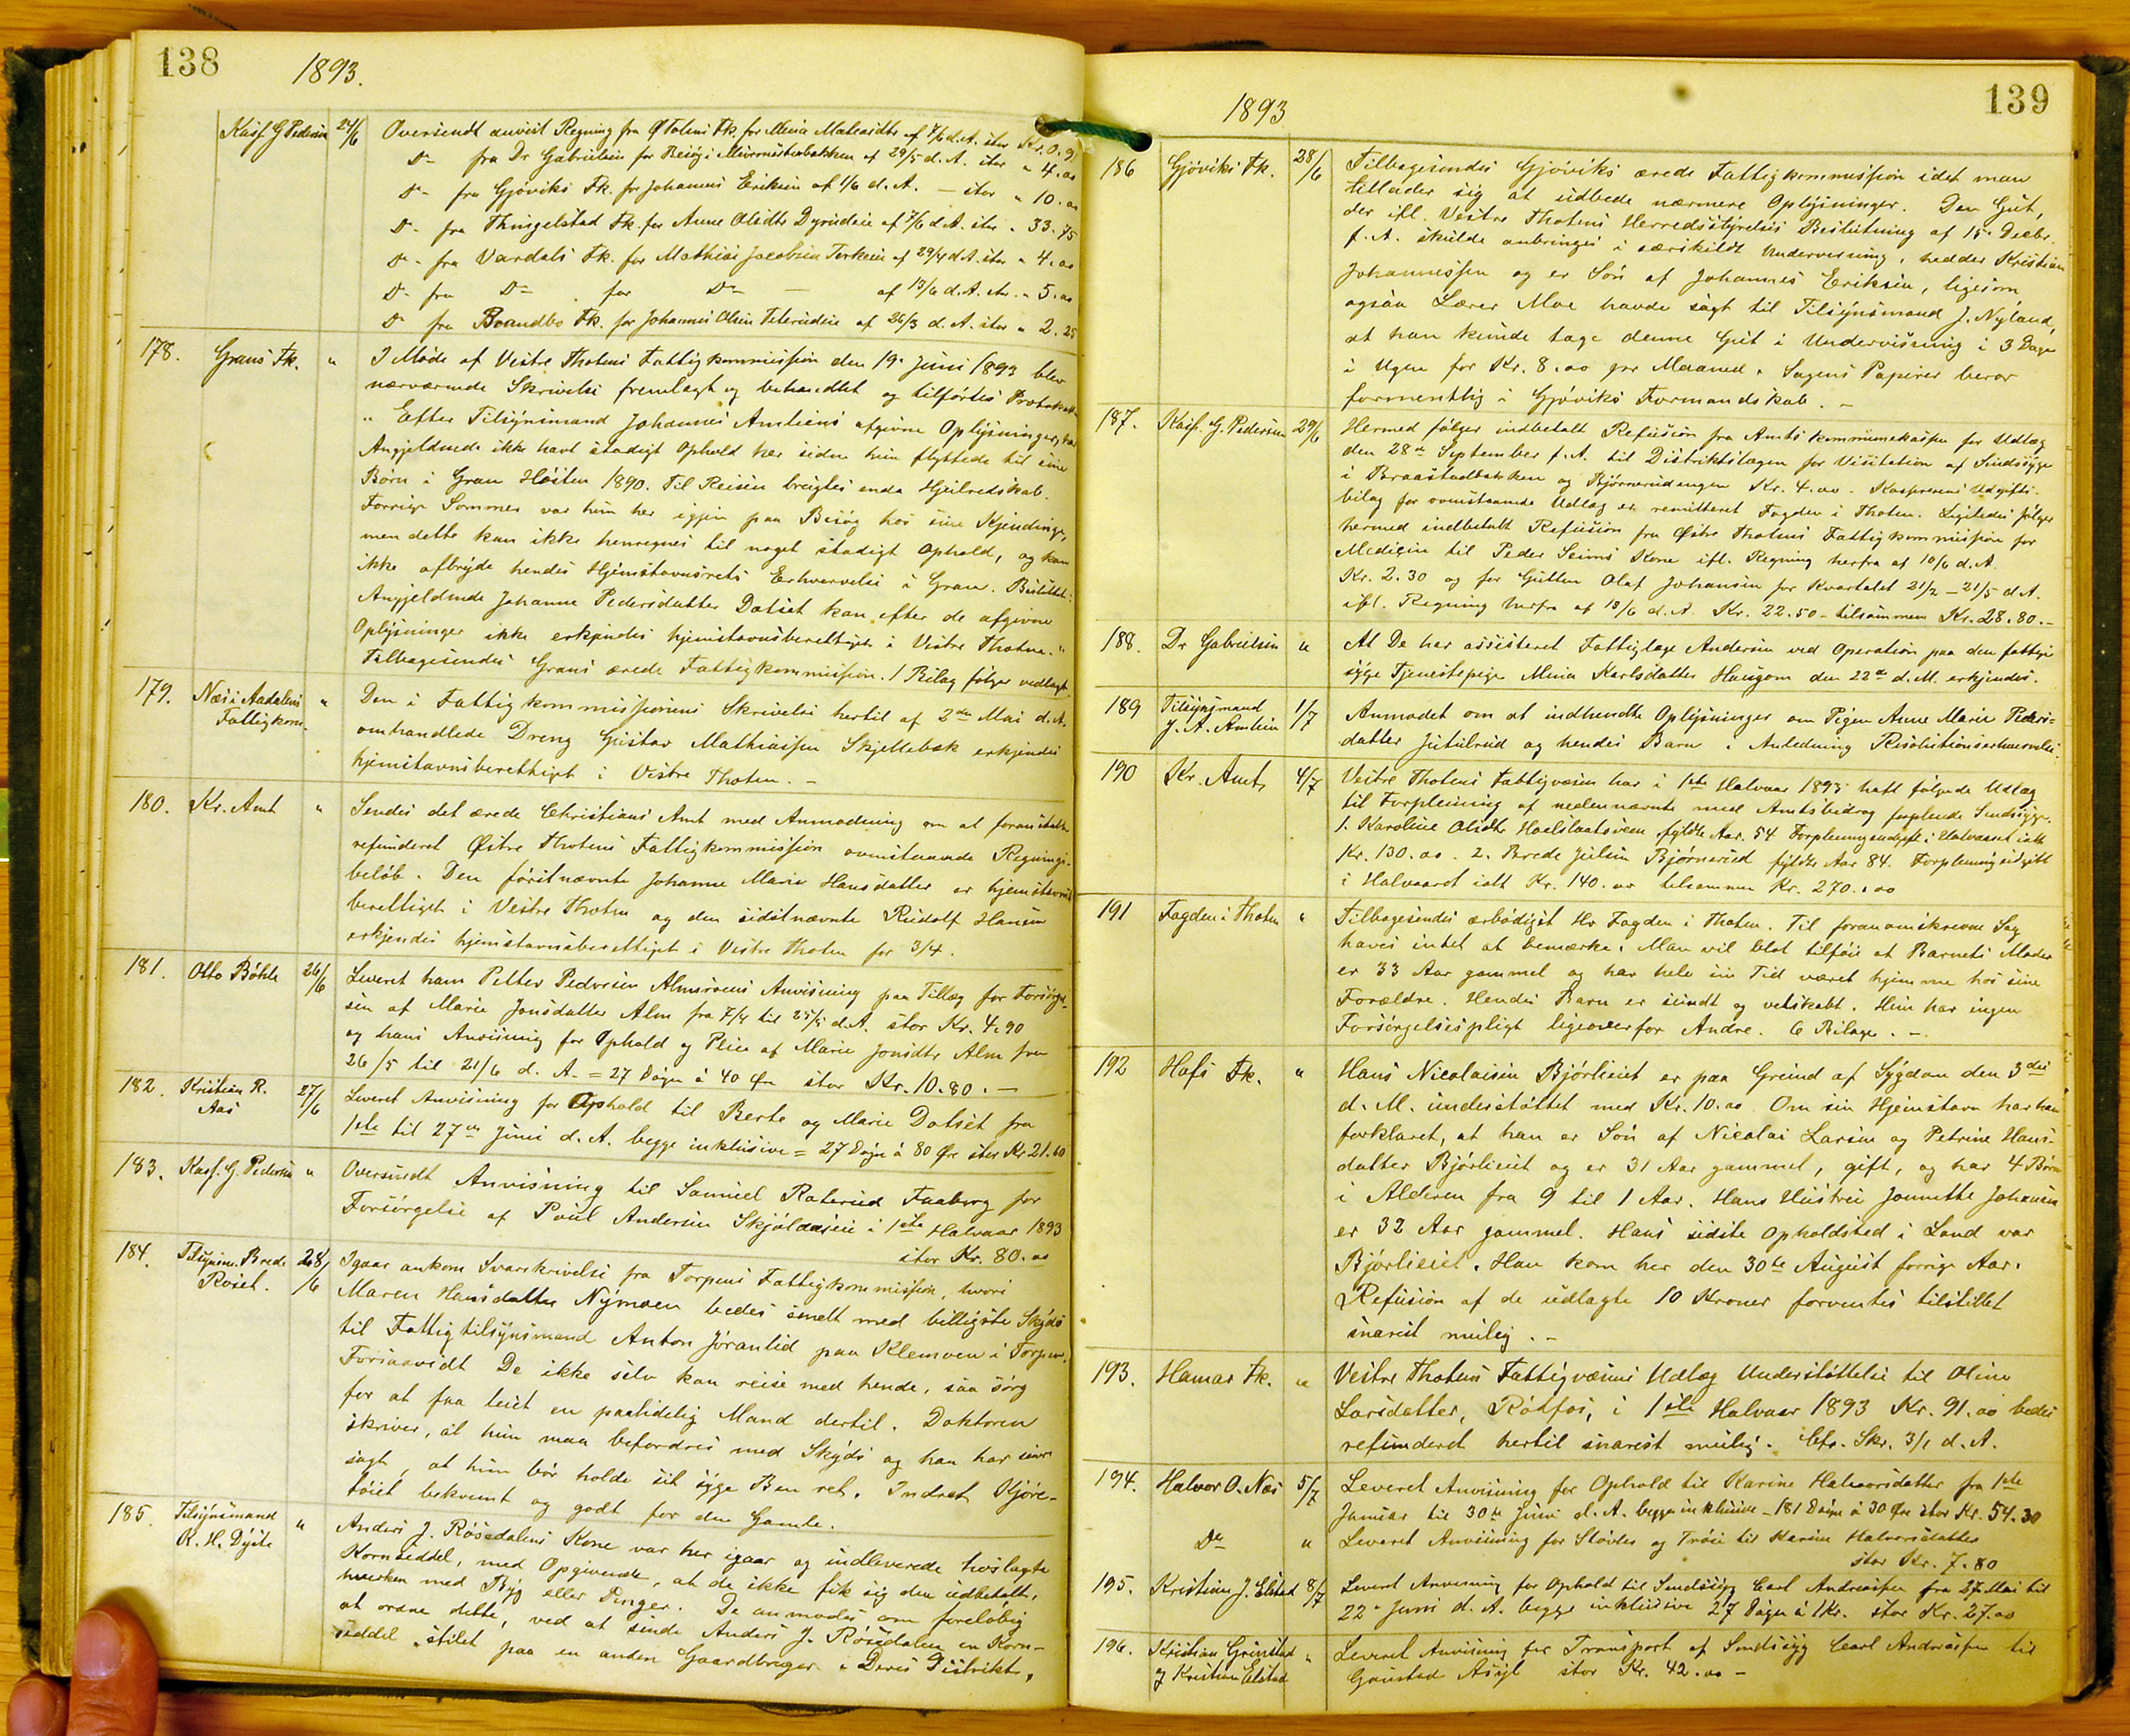 138
1893.
Kasf G Pedersen 24/6 Oversendt anvist Regning fra Ø Totens Fk. for Maria af 7/6 d.A. stor Kr. 0.9
Do fra Dr Gabrielsen for Besøg i af 29/5 d.A. stor " 4.00
Do fra Gjøviks Fk. for Johannes Eriksen af 1/6 d.A. – stor " 10.00
Do fra Thingelstad Fk. for Anne Olsdtr af 7/6 d.A. stor " 33.75
Do fra Vardals Fk. for Mathias Jacobsen af 29/4 d.A. stor " 4.00
Do fra Do for Do – af 13/6 d.A. stor " 5.00
Do fra Brandbo Fk. for Johannes Olsen af 26/3 d.A. stor " 2.25
178. Grans Fk. " I Møde af Vestre Thotens Fattigkommission den 19. Juni 1893 blev
nærværende Skrivelse fremlagt og behandlet og tilførtes
" Efter Tilsynsmand Johannes Amliens afgivne Oplysninger, har
Angjeldende ikke havt stadigt Ophold her siden hun flyttede til sine
Børn i Gran Høsten 1890. Til Reisen brugtes enda Hjulredskab.
Forrige Sommer var hun her igjen paa Besøg hos sine Kjendinge,
men dette kan ikke henregnes til noget stadigt Ophold, og kan
ikke afbryde hendes Hjemstavnsrets Erhvervelse i Gran. Besluttet:
Angjeldende Johanne Pedersdatter Dotset kan efter de afgivne
Oplysninger ikke erkjendes hjemstavnsberettiget i Vestre Thoten. "
Tilbagesendes Grans ærede Fattigkommission. 1 Bilag følger vedlagt.
179. Næs i Aadalens Fattigkom. " Den i Fattigkommissionens Skrivelse hertil af 2den Mai d.A.
omhandlede Dreng Gustav Mathiassen Skjellebæk erkjendes
hjemstavnsberettiget i Vestre Thoten. –
180. Kr. Amt " Sendes det ærede Christians Amt med Anmodning om at foranstalte
refunderet Østre Thotens Fattigkommission ovenstaaende Regnings-
beløb. Den førstnævnte Johanne Marie Hansdatter er hjemstavns
berettiget i Vestre Thoten og den sidstnævnte Rudolf Hansen
erkjendes hjemstavnsberettiget i Vestre Thoten for 3/4.
181. Otto Bøhle 26/6 Leveret ham Petter Pedersen Anvisning paa Tillæg for Forsørgel-
sen af Marie Jonsdatter Alm fra 7/4 til 25/5 d.A. stor Kr. 4.90
og hans Anvisning for Ophold og Pleie af Marie Jonsdtr Alm fra
26/5 til 21/6 d.A. = 27 Døgn á 40 Øre stor Kr. 10.80. –
182. Kristian R. Aas 27/6 Leveret Anvisning for Ophold til Berte og Marie Dotset fra
1ste til 27de Juni d.A. begge inklusive = 27 Døgn á 80 Øre stor Kr 21.60
183. Kasf. G. Pedersen " Oversendt Anvisning til Samuel Raterud Faaberg for
Forsørgelse af Poul Andersen i 1ste Halvaar 1893
stor Kr. 80.00
184. Tilsynsm. Brede Roset. 28/6 Igaar ankom Svarskrivelse fra Torpens Fattigkommission, hvori
Maren Hansdatter Nymoen bedes sendt med billigste Skyds
til Fattigtilsynsmand Anton Jøranlid paa Klemoen i Torpen.
Forsaavidt De ikke selv kan reise med hende, saa sørg
for at faa leiet en paalidelig Mand dertil. Doktoren
skriver, at hun maa befordres med Skyds og han har
sagt, at hun bør holde sit syge Ben ret. Indret Kjøre-
tøiet bekvemt og godt for den Gamle.
185. Tilsynsmand R. H. Dyste " Anders J. Røsedalens Kone var her igaar og indleverede hoslagte
Kornseddel, med Opgivende, at de ikke fik sig den udbetalt,
hverken med Byg eller Penger. De anmodes om foreløbig
at ordne dette, ved at sende Anders J. Røsedalen en Korn-
seddel stilet paa en anden Gaardbruger i Deres Distrikt,
139
1893
186 Gjøviks Fk. 28/6 Tilbagesendes Gjøviks ærede Fattigkommission idet man
tillader sig at udbede nærmere Oplysninger. Den Gut,
der ifl. Vestre Thotens Herredsstyrelses Beslutning af 15. Decbr.
f.A. skulde anbringes i særskildt Undervisning, hedder Kristian
Johannessen og er Søn af Johannes Eriksen, ligesom
ogsaa Lærer Moe havde sagt til Tilsynsmand J. Nyland,
at han kunde tage denne Gut i Undervisning i 3 Dage
i Ugen for Kr. 8.00 pr Maaned. Sagens Papirer beror
formentlig i Gjøviks Formandskab. –
187. Kasf. G. Pedersen 29/6 Hermed følger indbetalt Refusion fra Amtskommunekassen for Udlæg
den 28de September f.A. til Distriktslægen for Visitation af Sindssyge
i Braastadbakken og Bjørnerudengen Kr. 4.00. Kassererens Udgifts-
bilag for ovenstaaende Udlæg er remitteret Fogden i Thoten. Ligeledes følger
hermed indbetalt Refusion fra Østre Thotens Fattigkommission for
Medicin til Peder Seims Kone ifl. Regning herfra af 10/6 d.A.
Kr. 2.30 og for Gutten Olaf Johansen for Kvartalet 21/2 – 21/5 d.A.
ifl. Regning herfra af 13/6 d.A. Kr. 22.50 – tilsammen Kr. 28.80. –
188. Dr Gabrielsen " At De har assisteret Fattiglæge Andersen ved Operation paa den fattige
syge Tjenestepige Mina Karlsdatter Haugom den 22de d.M. erkjendes.
189 Tilsynsmand J. A. Amlien 1/7 Anmodet om at indhendte Oplysninger om Pigen Anne Marie Peders-
datter Jutulrud og hendes Barn i Anledning Resolutionserhvervelse.
190 Kr. Amt 4/7 Vestre Thotens Fattigvæsen har i 1ste Halvaar 1893 haft følgende Udlæg
til Forpleining af nedennævnte med Amtsbidrag forpleiede Sindssyge.
1. Karoline Olsdtr fyldte Aar. 54 Forpleiningsudgift i Halvaaret ialt
Kr. 130.00. 2. Brede Julsen Bjørnerud fyldte Aar 84. Forpleiningsudgift
i Halvaaret ialt Kr. 140.00 tilsammen Kr. 270.00
191 Fogden i Thoten " Tilbagesendes ærbødigst Hr Fogden i Thoten. Til foranomskrevne Sag
haves intet at bemærke. Man vil blot tilføie at Barnets Moder
er 33 Aar gammel og har hele sin Tid været hjemme hos sine
Forældre. Hendes Barn er sundt og velskabt. Hun har ingen
Forsørgelsespligt ligeoverfor Andre. 6 Bilage. –
192 Hofs Fk. " Hans Nicolaisen Bjørlieiet er paa Grund af Sygdom den 3die
d.M. understøttet med Kr. 10.00 Om sin Hjemstavn har han
forklaret, at han er Søn af Nicolai Larsen og Petrine Hans-
datter Bjørlieiet og er 31 Aar gammel, gift, og har 4 Børn
i Alderen fra 9 til 1 Aar. Hans Hustru Jonette Johansen
er 32 Aar gammel. Hans sidste Opholdsted i Land var
Bjørlieiet. Han kom her den 30te August forrige Aar.
Refusion af de udlagte 10 Kroner forventes tilstillet
snarest mulig. –
193. Hamar Fk. " Vestre Thotens Fattigvæsens Udlæg Understøttelse til Oline
Larsdatter, Røtfos, i 1ste Halvaar 1893 Kr. 91.00 bedes
refunderet hertil snarest mulig. Cfr. Skr. 3/1 d.A.
194. Halvor O. Næs 5/7 Leveret Anvisning for Ophold til Karine Halvorsdatter fra 1ste
Januar til 30te Juni d.A. begge inklusive – 181 Døgn á 30 Øre stor Kr. 54.30
Do " Leveret Anvisning for Støvler og Trøie til Karine Halvorsdatter
stor Kr. 7.80
195. Kristian J. Elstad 8/7 Leveret Anvisning for Ophold til Sindssyg Carl Andreassen fra 27 Mai til
22. Juni d.A. begge inklusive 27 Døgn á 1 Kr. stor Kr. 27.00
196. Kristian Grinstad J Kristian Elstad " Leveret Anvisning for Transport af Sindssyg Carl Andreassen til
Gaustad Asyl stor Kr. 42.00 –